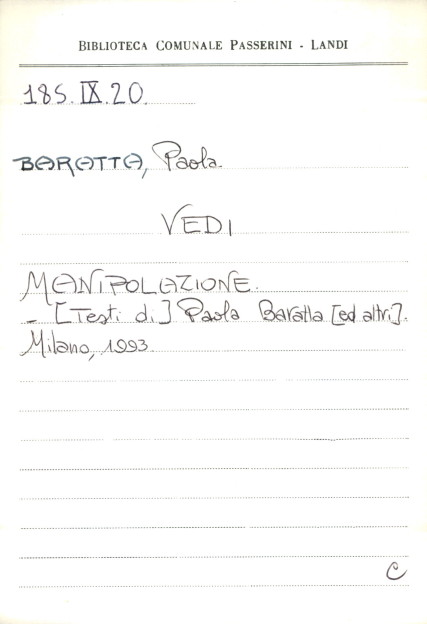 BIBLIOTECA COMUNALE PASSERINI - LANDI
185.IX.20.
BARATTA, Paola.
VEDI
MANIPOLAZIONE.
- [Testi di] Paola Baratta [ed altri].
Milano, 1993
C